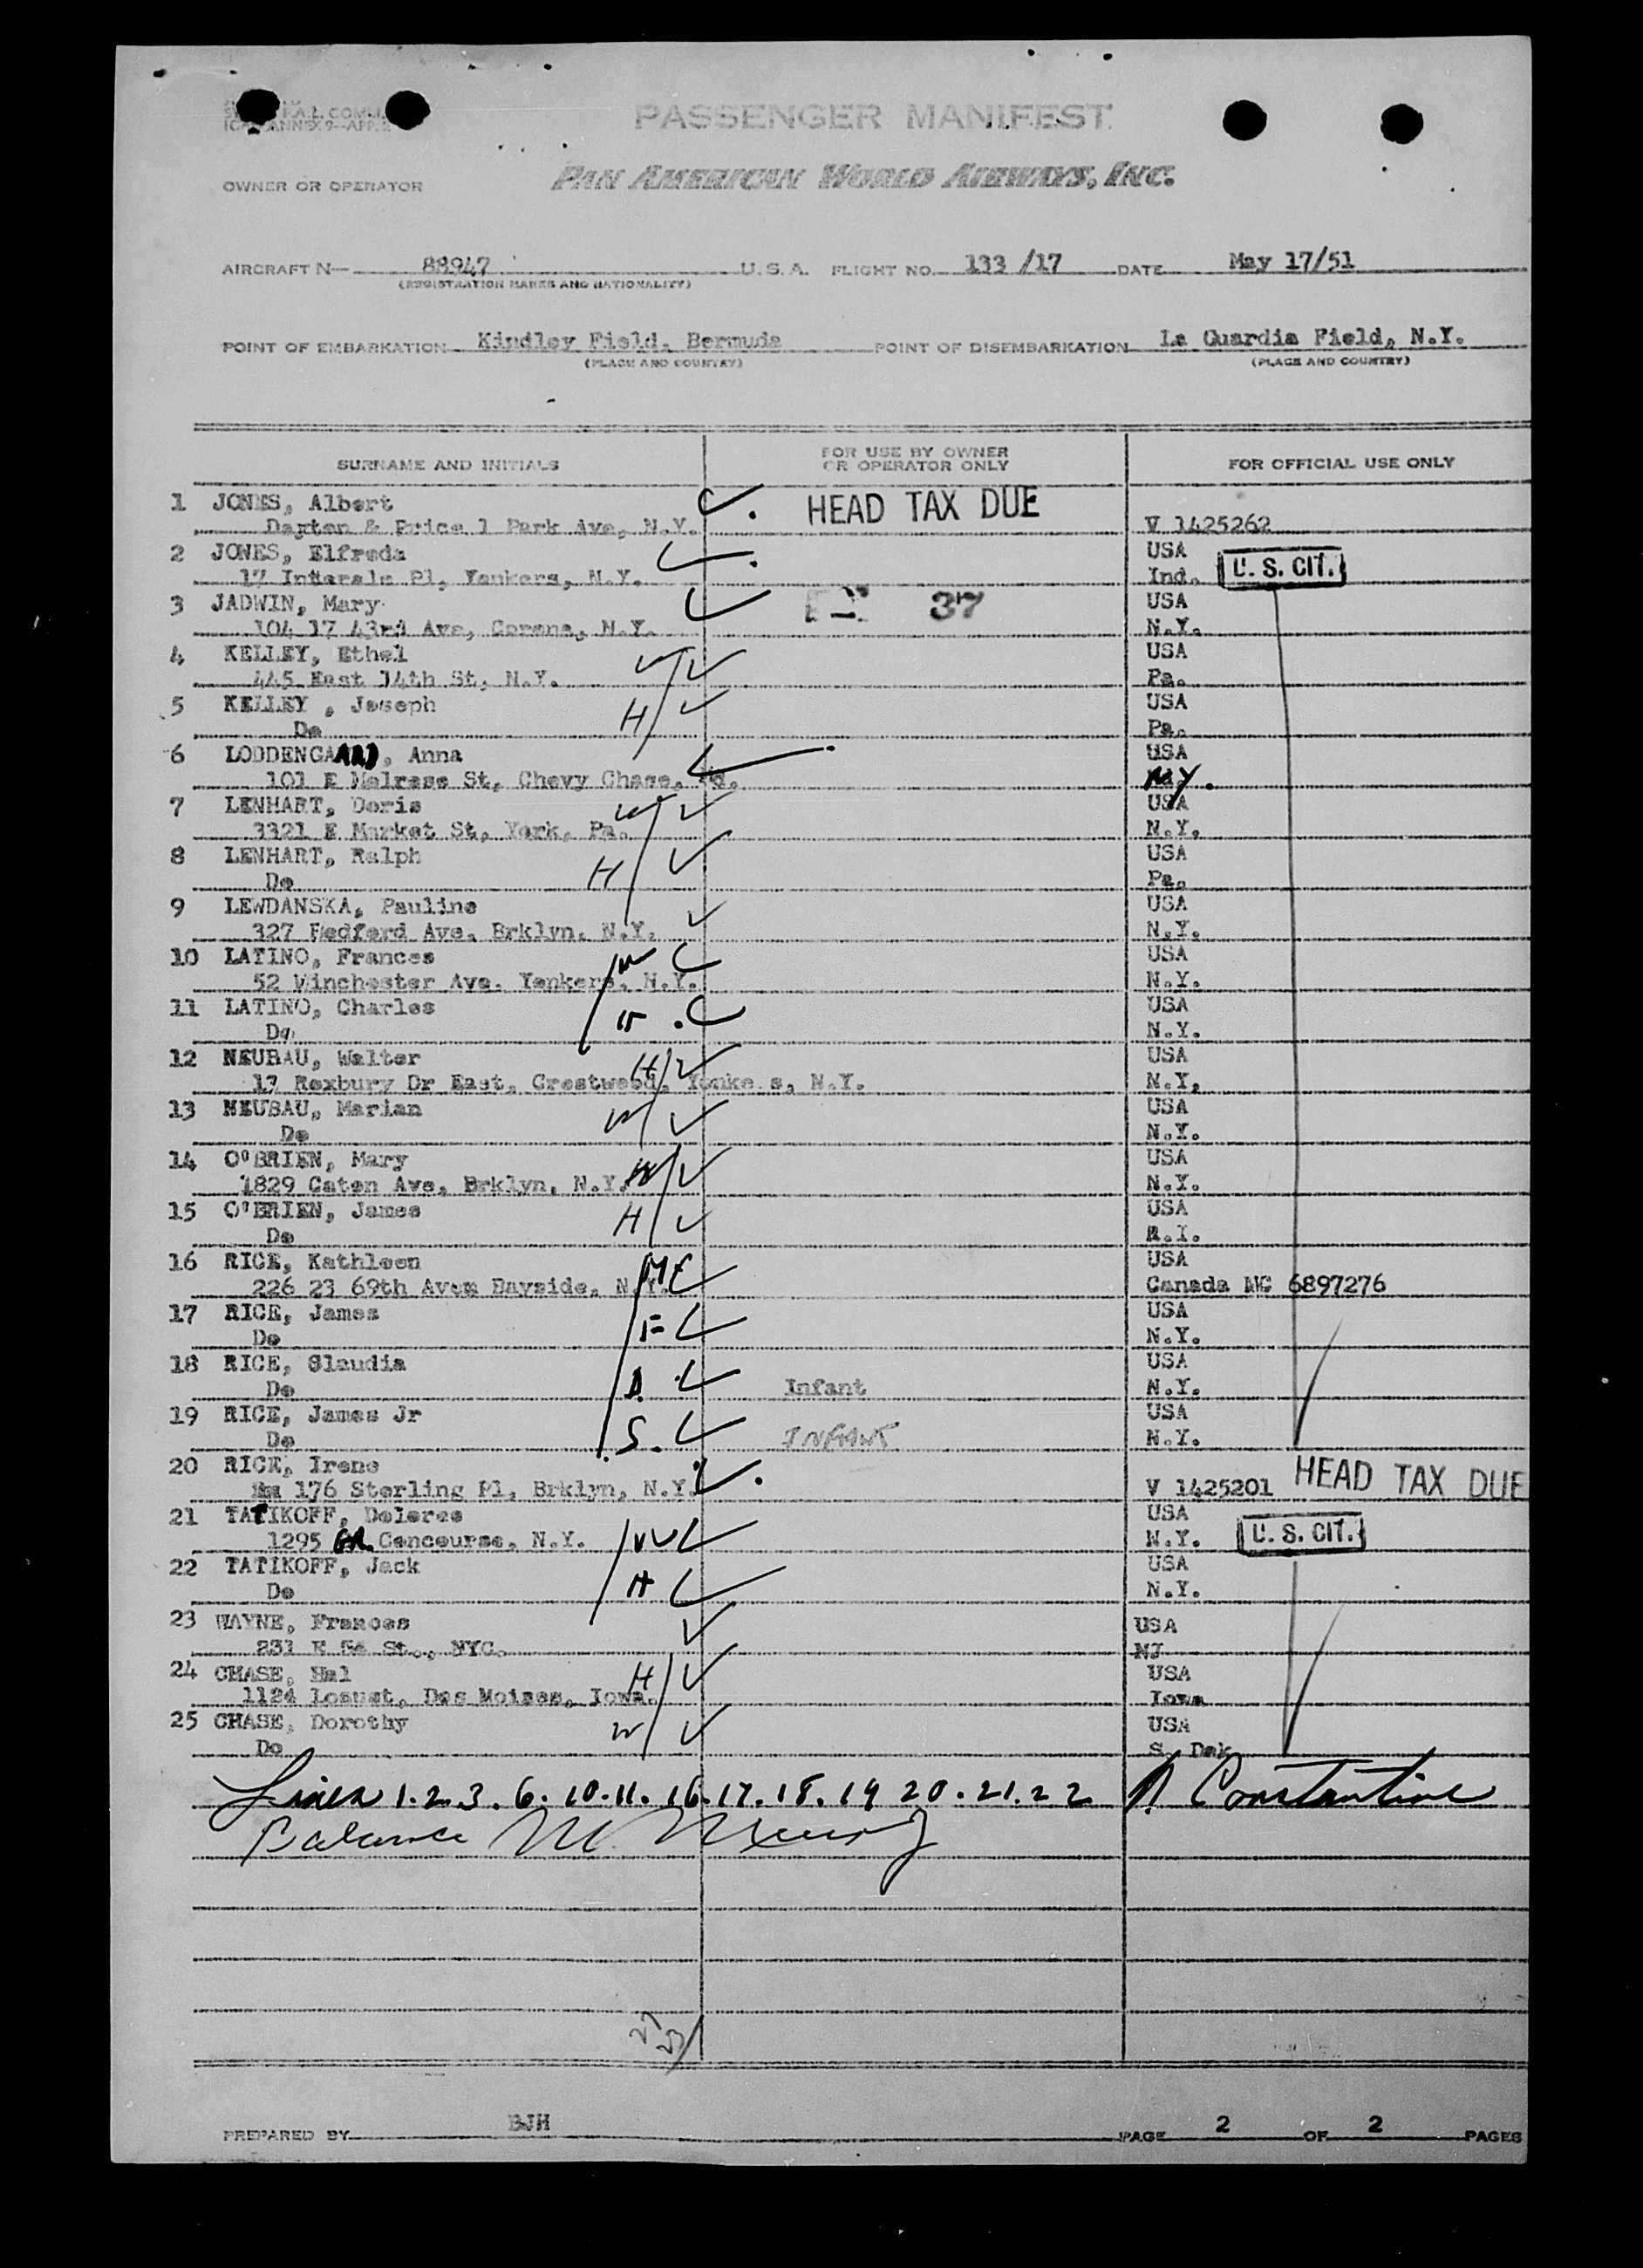 PASSENGER MANIFEST
ICAO ANNEX 9—APP.
OWNER OR OPERATOR PAN AMERICAN WORLD AIRWAYS, INC.
AIRCRAFT N— 88947 U.S.A. FLIGHT NO. 133 /17 DATE May 17/51
(REGISTRATION MARKS AND NATIONALITY)
POINT OF EMBARKATION Kindley Field, Bermuda POINT OF DISEMBARKATION La Guardia Field, N.Y.
(PLACE AND COUNTRY) (PLACE AND COUNTRY)
SURNAME AND INITIALS FOR USE BY OWNER OR OPERATOR ONLY FOR OFFICIAL USE ONLY
1 JONES, Albert HEAD TAX DUE
& Price 1 Park Ave, N.Y. V 1425262
2 JONES, Elfreda USA
17 Pl, Yonkers, N.Y. Ind. U. S. CIT.
3 JADWIN, Mary 37 USA
104 17 43rd Ave, Corona, N.Y. N.Y.
4 KELLEY, Ethel W USA
445 East 14th St, N.Y. Pa.
5 KELLEY , Joseph H USA
Do Pa.
6 LODDENGAARD, Anna USA
101 E Melrose St, Chevy Chase, Md. NY.
7 LENHART, Doris W USA
3321 E Market St, York, Pa. N.Y.
8 LENHART, Ralph H USA
Do Pa.
9 LEWDANSKA, Pauline USA
327 Bedford Ave. Brklyn. N.Y. N.Y.
10 LATINO, Frances USA
52 Winchester Ave. Yonkers. N.Y. N.Y.
11 LATINO, Charles USA
Do N.Y.
12 NEUBAU, Walter H USA
17 Roxbury Dr East, Crestwood, Yonke s, N.Y. N.Y.
13 NEUBAU, Marian W USA
Do N.Y.
14 O'BRIEN, Mary W USA
1829 Caton Ave, Brklyn, N.Y. N.Y.
15 O'BRIEN, James H USA
Do R.I.
16 RICE, Kathleen M USA
226 23 69th Avem Bayside, N.Y. Canada NC 6897276
17 RICE, James F USA
Do N.Y.
18 RICE, Slaudia D. USA
Do Infant N.Y.
19 RICE, James Jr S. USA
Do INFANT N.Y.
20 RICE, Irene HEAD TAX DUE
176 Sterling Pl, Brklyn, N.Y. V 1425201
21 TATIKOFF, Dolores W USA
1295 GR. Concourse, N.Y. N.Y. U. S. CIT.
22 TATIKOFF, Jack H USA
Do N.Y.
23 WAYNE, Frances USA
231 E 54 St., NYC. NJ
24 CHASE, Hal H USA
1124 Locust, Des Moines, Iowa. Iowa
25 CHASE, Dorothy W USA
Do S. Dak
Lines 1.2.3.6.10.11.16.17.18.19 20.21.22 Constantine
Balance
PREPARED BY BJH PAGE 2 OF 2 PAGES